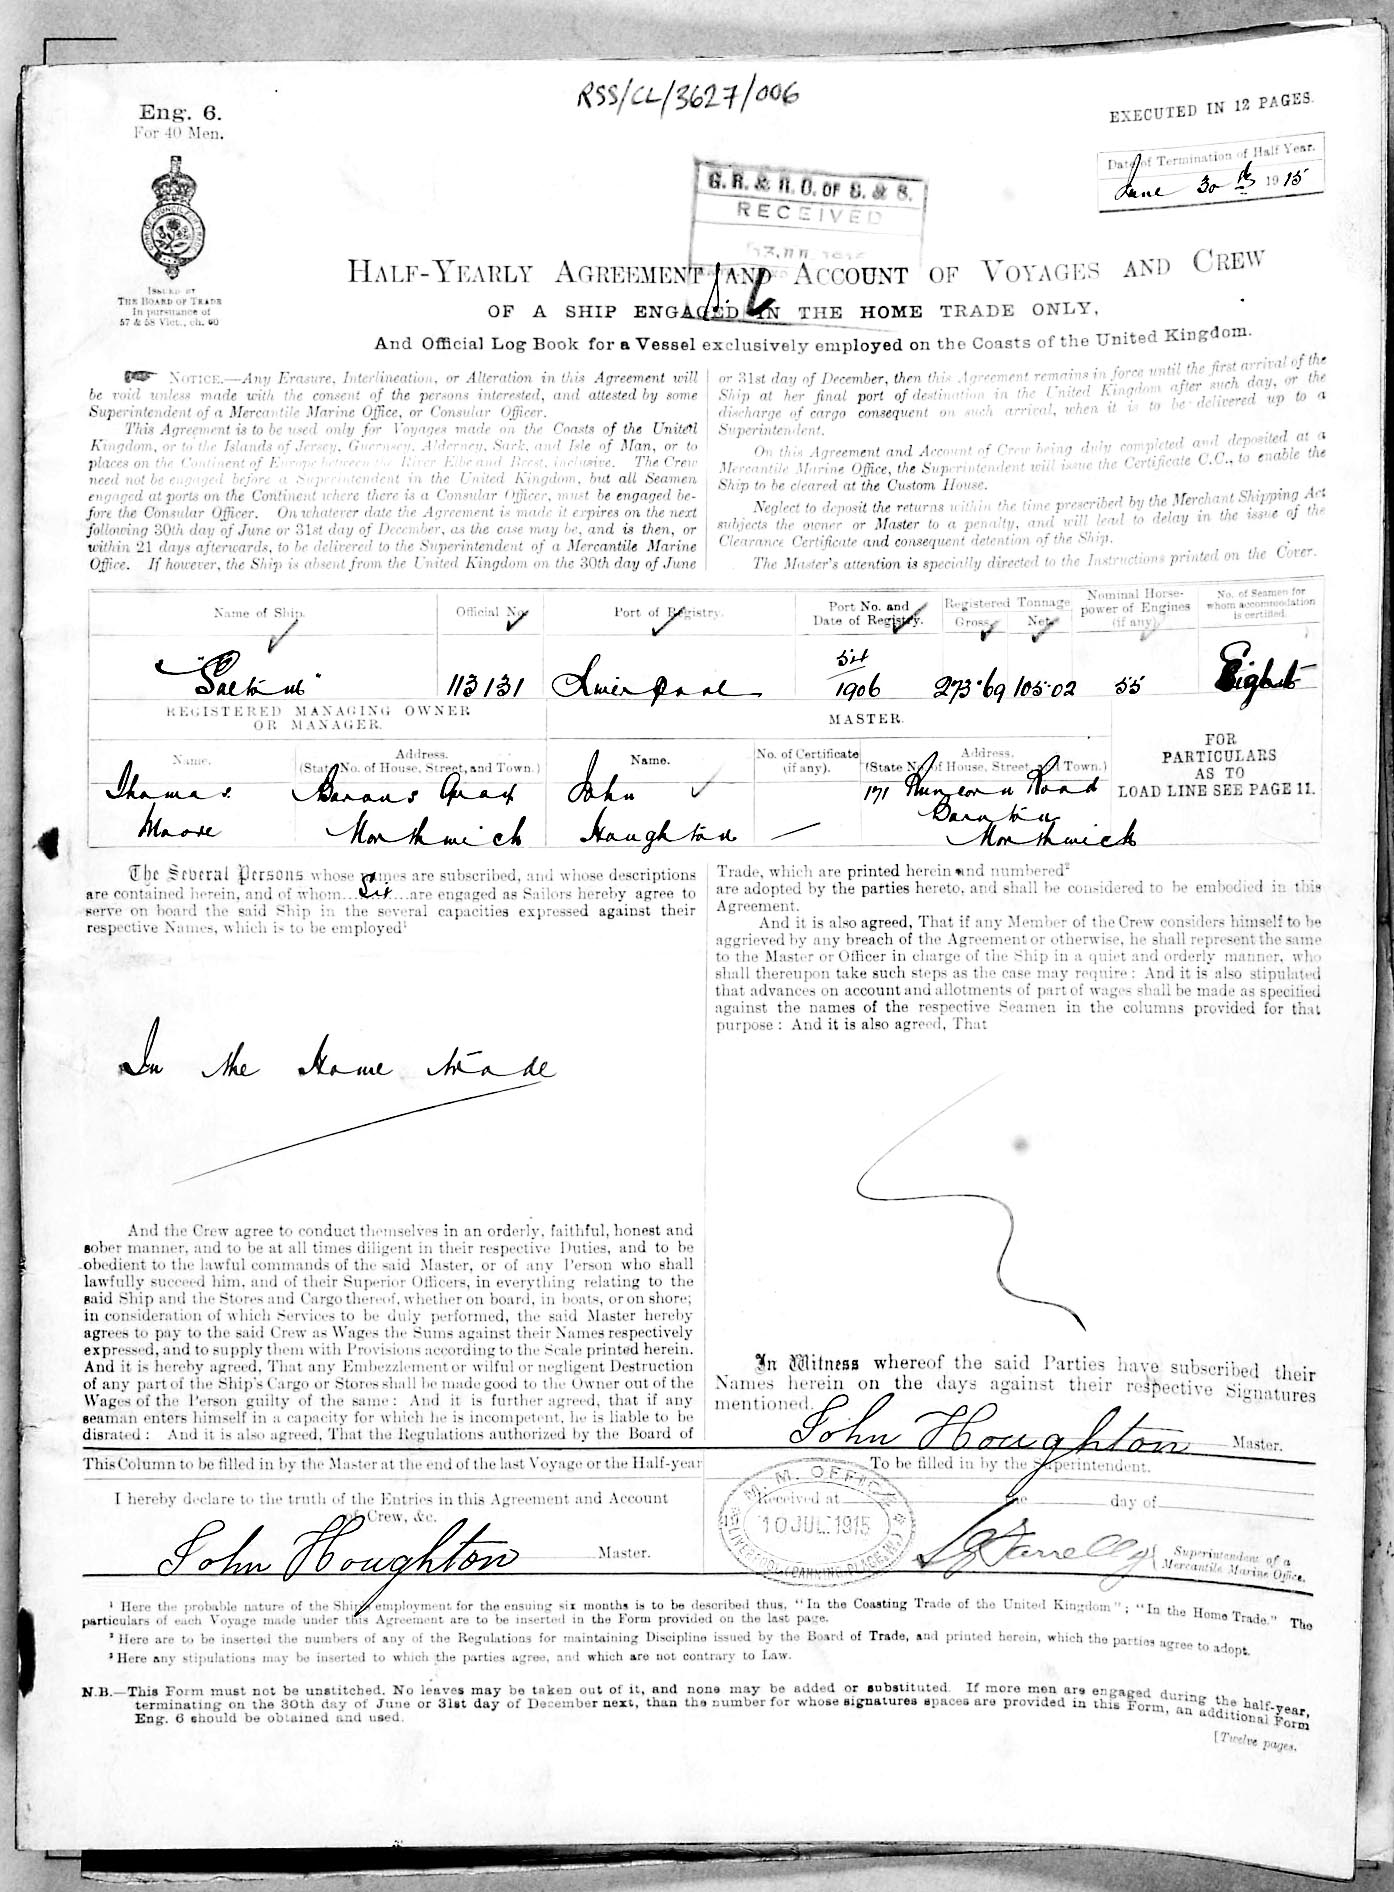 RSS/CL/3627/006
Eng. 6.
For 40 Men.
EXECUTED IN 12 PAGES.
Date of Termination of Half Year.
June 30th 1915
G. R. & R. O. OF S. & S.
RECEIVED
ISSUED BY
THE BOARD OF TRADE
In pursuance of
57 & 58 Vict., ch. 60
HALF-YEARLY AGREEMENT AND ACCOUNT OF VOYAGES AND CREW
OF A SHIP ENGAGED IN THE HOME TRADE ONLY,
And Official Log Book for a Vessel exclusively employed on the Coasts of the United Kingdom.
NOTICE.—Any Erasure, Interlineation, or Alteration in this Agreement will
be void unless made with the consent of the persons interested, and attested by some
Superintendent of a Mercantile Marine Office, or Consular Officer.
This Agreement is to be used only for Voyages made on the Coasts of the United
Kingdom, or to the Islands of Jersey, Guernsey, Alderney, Sark, and Isle of Man, or to
places on the Continent of Europe between the River Elbe and Brest, inclusive. The Crew
need not be engaged before a Superintendent in the United Kingdom, but all Seamen
engaged at ports on the Continent where there is a Consular Officer, must be engaged be-
fore the Consular Officer. On whatever date the Agreement is made it expires on the next
following 30th day of June or 31st day of December, as the case may be, and is then, or
within 21 days afterwards, to be delivered to the Superintendent of a Mercantile Marine
Office. If however, the Ship is absent from the United Kingdom on the 30th day of June
or 31st day of December, then this Agreement remains in force until the first arrival of the
Ship at her final port of destination in the United Kingdom after such day, or the
discharge of cargo consequent on such arrival, when it is to be delivered up to a
Superintendent.
On this Agreement and Account of Crew being duly completed and deposited at a
Mercantile Marine Office, the Superintendent will issue the Certificate C.C., to enable the
Ship to be cleared at the Custom House.
Neglect to deposit the returns within the time prescribed by the Merchant Shipping Act
subjects the owner or Master to a penalty, and will lead to delay in the issue of the
Clearance Certificate and consequent detention of the Ship.
The Master's attention is specially directed to the Instructions printed on the Cover.
Name of Ship.
Official No.
Port of Registry.
Port No. and
Date of Registry.
Registered Tonnage
Gross.
Net.
Nominal Horse-
power of Engines
(if any).
No. of Seamen for
whom accommodation
is certified.
113131
Liverpool
1906
273·69
105·02
55
Eight
REGISTERED MANAGING OWNER
OR MANAGER.
MASTER.
FOR
PARTICULARS
AS TO
LOAD LINE SEE PAGE 11.
Name.
Address.
(State No. of House, Street, and Town.)
Name.
No. of Certificate
(if any).
Address.
(State No. of House, Street and Town.)
Thomas
Moore
Barons Quay
Northwich
John
Houghton
171 Runcorn Road
Barnton
Northwich
The Several Persons whose names are subscribed, and whose descriptions
are contained herein, and of whom Six are engaged as Sailors hereby agree to
serve on board the said Ship in the several capacities expressed against their
respective Names, which is to be employed¹
In the Home trade
And the Crew agree to conduct themselves in an orderly, faithful, honest and
sober manner, and to be at all times diligent in their respective Duties, and to be
obedient to the lawful commands of the said Master, or of any Person who shall
lawfully succeed him, and of their Superior Officers, in everything relating to the
said Ship and the Stores and Cargo thereof, whether on board, in boats, or on shore;
in consideration of which Services to be duly performed, the said Master hereby
agrees to pay to the said Crew as Wages the Sums against their Names respectively
expressed, and to supply them with Provisions according to the Scale printed herein.
And it is hereby agreed, That any Embezzlement or wilful or negligent Destruction
of any part of the Ship's Cargo or Stores shall be made good to the Owner out of the
Wages of the Person guilty of the same: And it is further agreed, that if any
seaman enters himself in a capacity for which he is incompetent, he is liable to be
disrated: And it is also agreed, That the Regulations authorized by the Board of
Trade, which are printed herein and numbered²
are adopted by the parties hereto, and shall be considered to be embodied in this
Agreement.
And it is also agreed, That if any Member of the Crew considers himself to be
aggrieved by any breach of the Agreement or otherwise, he shall represent the same
to the Master or Officer in charge of the Ship in a quiet and orderly manner, who
shall thereupon take such steps as the case may require: And it is also stipulated
that advances on account and allotments of part of wages shall be made as specified
against the names of the respective Seamen in the columns provided for that
purpose: And it is also agreed, That
In Witness whereof the said Parties have subscribed their
Names herein on the days against their respective Signatures
mentioned.
John Houghton Master.
This Column to be filled in by the Master at the end of the last Voyage or the Half-year
I hereby declare to the truth of the Entries in this Agreement and Account
of Crew, &c.
John Houghton Master.
To be filled in by the Superintendent.
Received at the day of
M. M. OFFICE
10 JUL 1915
LIVERPOOL (CANNING PLACE)
Farrelly
Superintendent of a
Mercantile Marine Office.
¹ Here the probable nature of the Ship's employment for the ensuing six months is to be described thus, "In the Coasting Trade of the United Kingdom"; "In the Home Trade." The
particulars of each Voyage made under this Agreement are to be inserted in the Form provided on the last page.
² Here are to be inserted the numbers of any of the Regulations for maintaining Discipline issued by the Board of Trade, and printed herein, which the parties agree to adopt.
³ Here any stipulations may be inserted to which the parties agree, and which are not contrary to Law.
N.B.—This Form must not be unstitched. No leaves may be taken out of it, and none may be added or substituted. If more men are engaged during the half-year,
terminating on the 30th day of June or 31st day of December next, than the number for whose signatures spaces are provided in this Form, an additional Form
Eng. 6 should be obtained and used.
[Twelve pages.